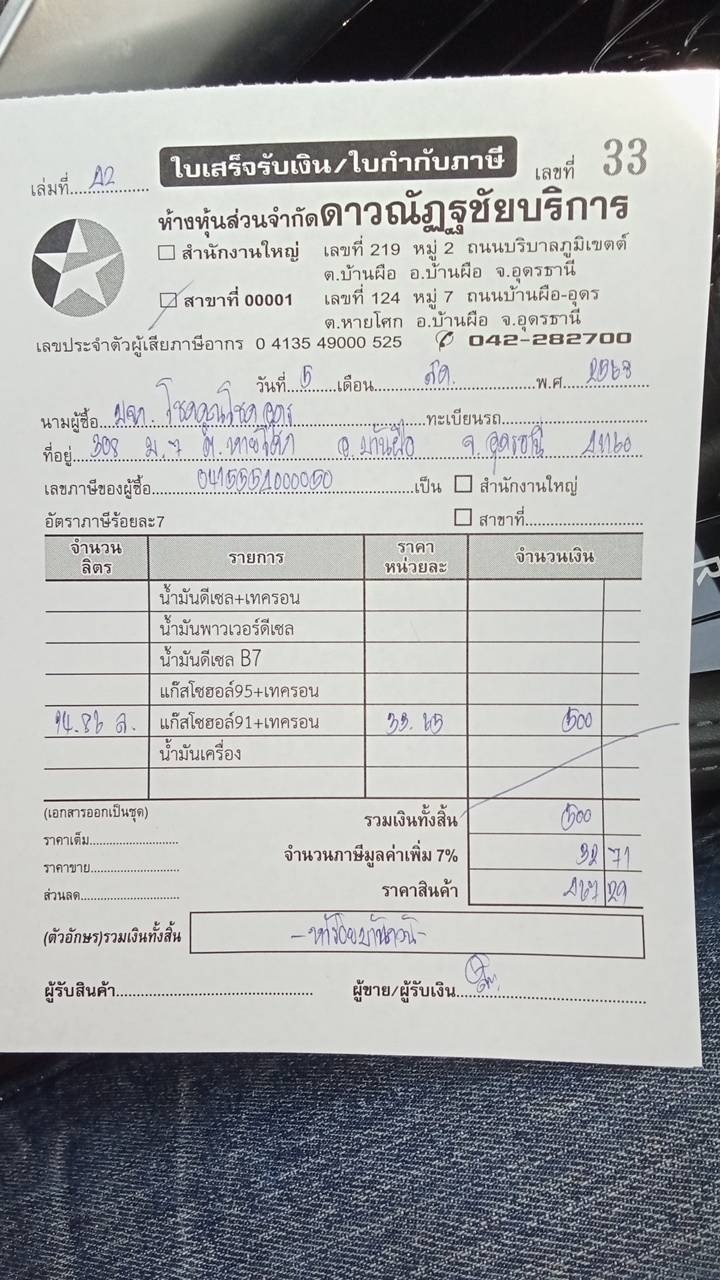 ใบเสร็จรับเงิน/ใบกำกับภาษี
เล่มที่
เลขที่ 33
ห้างหุ้นส่วนจำกัดดาวณัฏฐชัยบริการ
สำนักงานใหญ่ เลขที่ 219 หมู่ 2 ถนนบริบาลภูมิเขตต์
ต.บ้านผือ อ.บ้านผือ จ.อุดรธานี
สาขาที่ 00001 เลขที่ 124 หมู่ 7 ถนนบ้านผือ-อุดร
ต.หายโศก อ.บ้านผือ จ.อุดรธานี
เลขประจำตัวผู้เสียภาษีอากร 0 4135 49000 525 042-282700
วันที่ 5 เดือน พ.ศ 2563
นามผู้ซื้อ ทะเบียนรถ
ที่อยู่ 308 ม.7 ต.หายโศก อ.บ้านผือ จ.อุดรธานี 41160
เลขภาษีของผู้ซื้อ เป็น สำนักงานใหญ่
อัตราภาษีร้อยละ7 สาขาที่
จำนวนลิตร รายการ ราคาหน่วยละ จำนวนเงิน
น้ำมันดีเซล+เทครอน
น้ำมันพาวเวอร์ดีเซล
น้ำมันดีเซล B7
แก๊สโซฮอล์95+เทครอน
14.86 ล. แก๊สโซฮอล์91+เทครอน 33.65 500
น้ำมันเครื่อง
(เอกสารออกเป็นชุด) รวมเงินทั้งสิ้น 500
ราคาเต็ม
จำนวนภาษีมูลค่าเพิ่ม 7% 32 71
ราคาขาย
ราคาสินค้า 467 29
ส่วนลด
(ตัวอักษร)รวมเงินทั้งสิ้น -ห้าร้อยบาทถ้วน-
ผู้รับสินค้า ผู้ขาย/ผู้รับเงิน